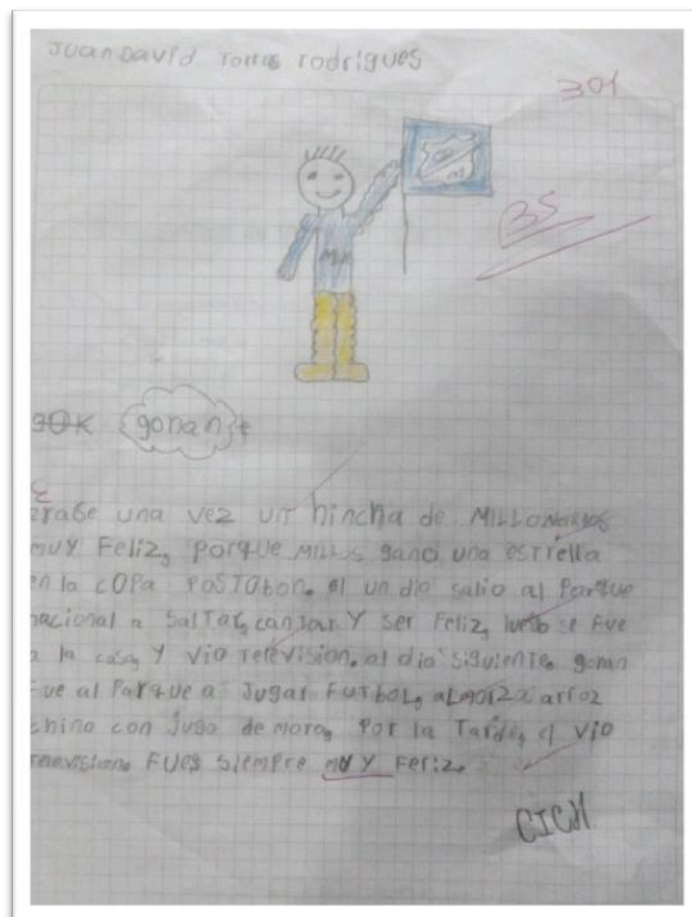 Juan David Torres rodrigues
301
35
MLLX
gok gonan
Erase una vez un hincha de MILLONARIOS
muy Feliz, Porque MILLOS gano una esTrella
en la coPa PosTobon. el un dia salio al Parque
nacional a SalTar, canTar Y ser Feliz, luego se Fue
a la casa, Y vio Television. al dia siguiente gonan
Fue al Parque a Jugar FuTbol, aLmorzo arroz
chino con jugo de mora, Por la Tarde, el vio
Television. FUes siempre mUY Feliz.